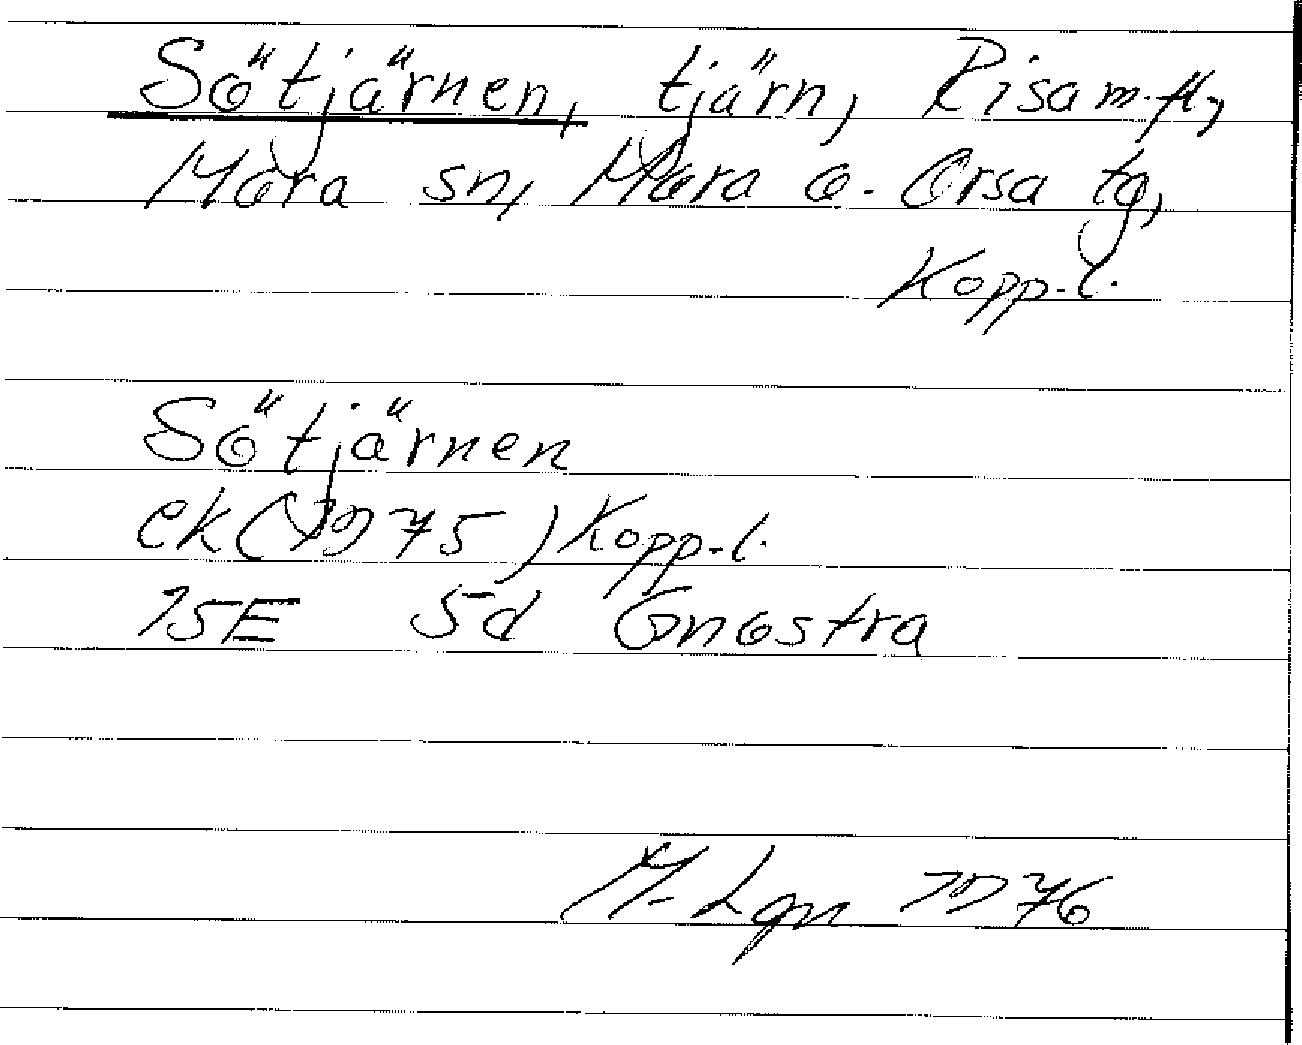 Sötjärnen, tjärn, Risam. fl,
Mora sn, Mora o. Orsa tg,
Kopp. l.
Sötjärnen
ek (1975) Kopp. l.
15E 5d Gnostra
M. Lgn 1976